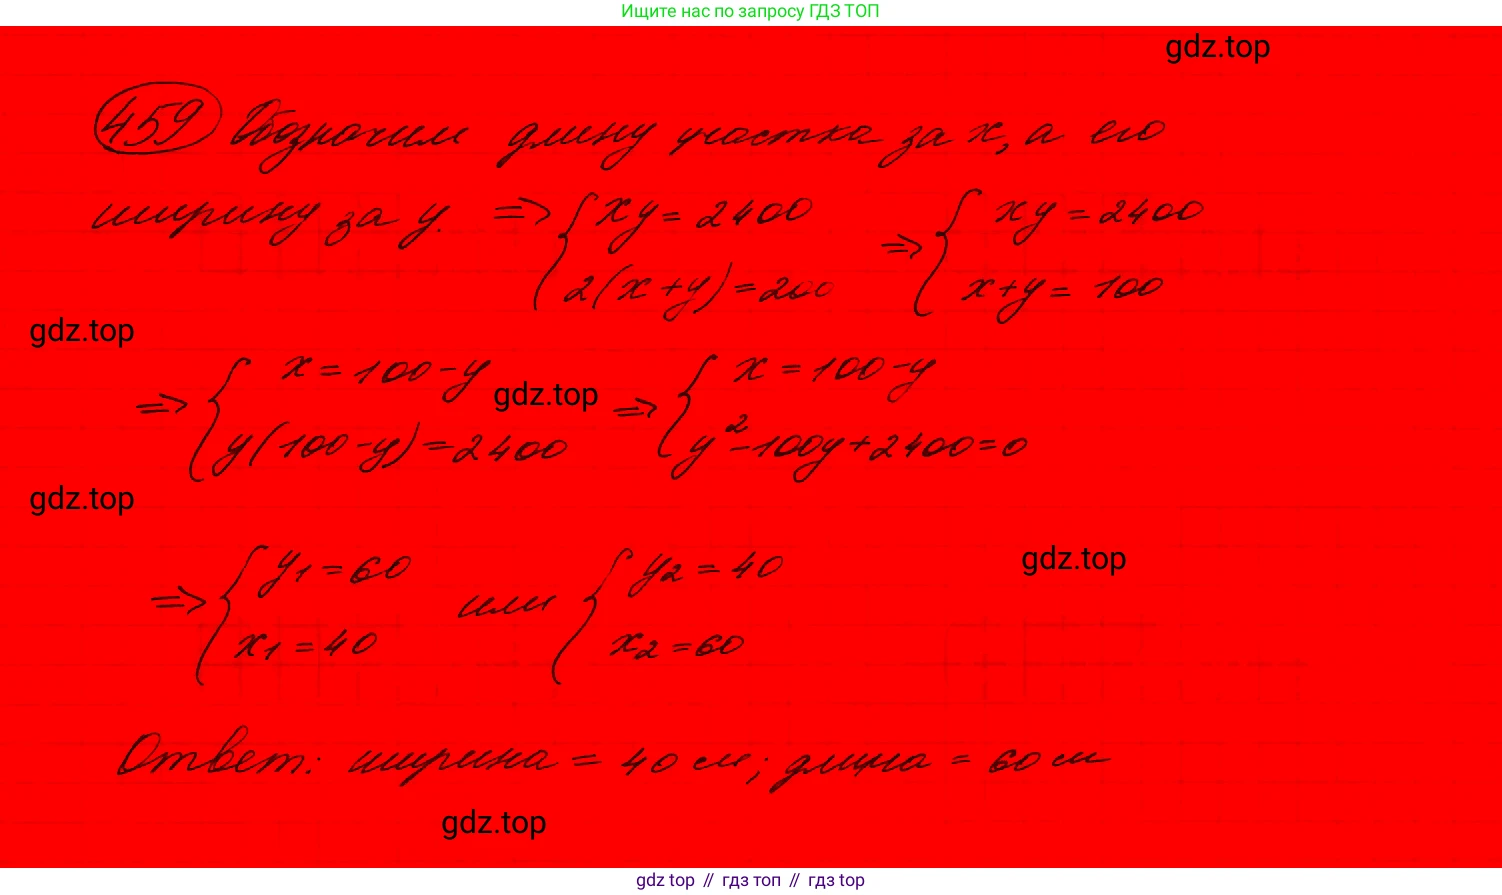 Ищите нас по запросу ГДЗ ТОП
gdz.top
459 Обозначим длину участка за x, а его
ширину за y. => { xy = 2400 => { xy = 2400
2(x+y) = 200 x+y = 100
gdz.top
=> { x = 100-y gdz.top => { x = 100-y
y(100-y) = 2400 y²-100y+2400=0
gdz.top
gdz.top
=> { y₁ = 60 или { y₂ = 40
x₁ = 40 x₂ = 60
Ответ: ширина = 40 м; длина = 60 м
gdz.top
gdz top // гдз топ // гдз top